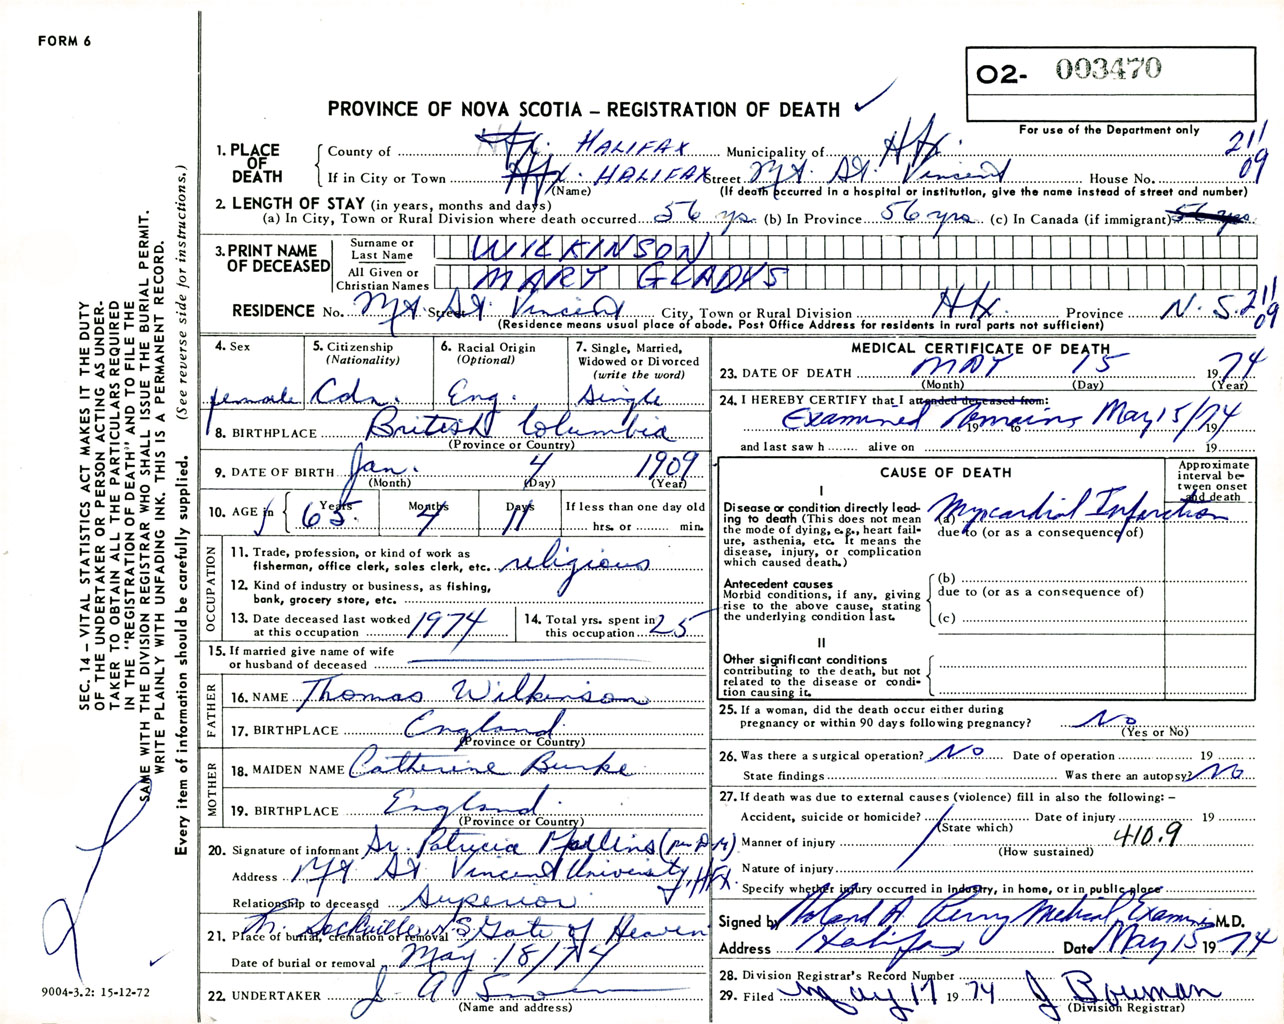 FORM 6
O2- 003470
PROVINCE OF NOVA SCOTIA – REGISTRATION OF DEATH
For use of the Department only
1. PLACE OF DEATH
County of Hfx. HALIFAX Municipality of Hfx. 211
If in City or Town Hfx. HALIFAX Street Mt. St. Vincent House No. 09
(Name) (If death occurred in a hospital or institution, give the name instead of street and number)
2. LENGTH OF STAY (in years, months and days)
(a) In City, Town or Rural Division where death occurred 56 yrs (b) In Province 56 yrs (c) In Canada (if immigrant) 56 yrs
3. PRINT NAME OF DECEASED
Surname or Last Name WILKINSON
All Given or Christian Names MARY GLADYS
RESIDENCE No. Mt. Street St. Vincent City, Town or Rural Division Hfx. Province N.S. 211 09
(Residence means usual place of abode. Post Office Address for residents in rural parts not sufficient)
4. Sex female
5. Citizenship (Nationality) Cdn.
6. Racial Origin (Optional) Eng.
7. Single, Married, Widowed or Divorced (write the word) Single
8. BIRTHPLACE British Columbia
(Province or Country)
9. DATE OF BIRTH Jan. 4 1909
(Month) (Day) (Year)
10. AGE in Years 65 Months 4 Days 11
If less than one day old
hrs. or min.
OCCUPATION
11. Trade, profession, or kind of work as fisherman, office clerk, sales clerk, etc. religious
12. Kind of industry or business, as fishing, bank, grocery store, etc.
13. Date deceased last worked at this occupation 1974
14. Total yrs. spent in this occupation 25
15. If married give name of wife or husband of deceased
FATHER
16. NAME Thomas Wilkinson
17. BIRTHPLACE England
(Province or Country)
MOTHER
18. MAIDEN NAME Catherine Burke
19. BIRTHPLACE England
(Province or Country)
20. Signature of informant Sr. Patricia Mullins
Address Mt. St. Vincent University, Hfx.
Relationship to deceased Superior
21. Place of burial, cremation or removal Sackville N.S. Gate of Heaven
Date of burial or removal May 18/74
22. UNDERTAKER J. A. Snow
(Name and address)
MEDICAL CERTIFICATE OF DEATH
23. DATE OF DEATH MAY 15 1974
(Month) (Day) (Year)
24. I HEREBY CERTIFY that I attended deceased from:
Examined Remains May 15/74
19 to 19
and last saw h alive on 19
CAUSE OF DEATH
Approximate interval between onset and death
I
Disease or condition directly leading to death (This does not mean the mode of dying, e.g., heart failure, asthenia, etc. It means the disease, injury, or complication which caused death.)
(a) Myocardial Infarction
due to (or as a consequence of)
Antecedent causes
Morbid conditions, if any, giving rise to the above cause, stating the underlying condition last.
(b)
due to (or as a consequence of)
(c)
II
Other significant conditions contributing to the death, but not related to the disease or condition causing it.
25. If a woman, did the death occur either during pregnancy or within 90 days following pregnancy? No
(Yes or No)
26. Was there a surgical operation? No Date of operation 19
State findings Was there an autopsy? No
27. If death was due to external causes (violence) fill in also the following: –
Accident, suicide or homicide? Date of injury 19
(State which) 410.9
Manner of injury
(How sustained)
Nature of injury
Specify whether injury occurred in Industry, in home, or in public place
Signed by Roland A. Perry Medical Examiner M.D.
Address Halifax Date May 15 1974
28. Division Registrar's Record Number
29. Filed May 17 1974 J Bowman
(Division Registrar)
SEC. 14 – VITAL STATISTICS ACT MAKES IT THE DUTY
OF THE UNDERTAKER OR PERSON ACTING AS UNDER-
TAKER TO OBTAIN ALL THE PARTICULARS REQUIRED
IN THE "REGISTRATION OF DEATH" AND TO FILE THE
SAME WITH THE DIVISION REGISTRAR WHO SHALL ISSUE THE BURIAL PERMIT.
WRITE PLAINLY WITH UNFADING INK. THIS IS A PERMANENT RECORD.
Every item of information should be carefully supplied. (See reverse side for instructions.)
9004-3.2: 15-12-72